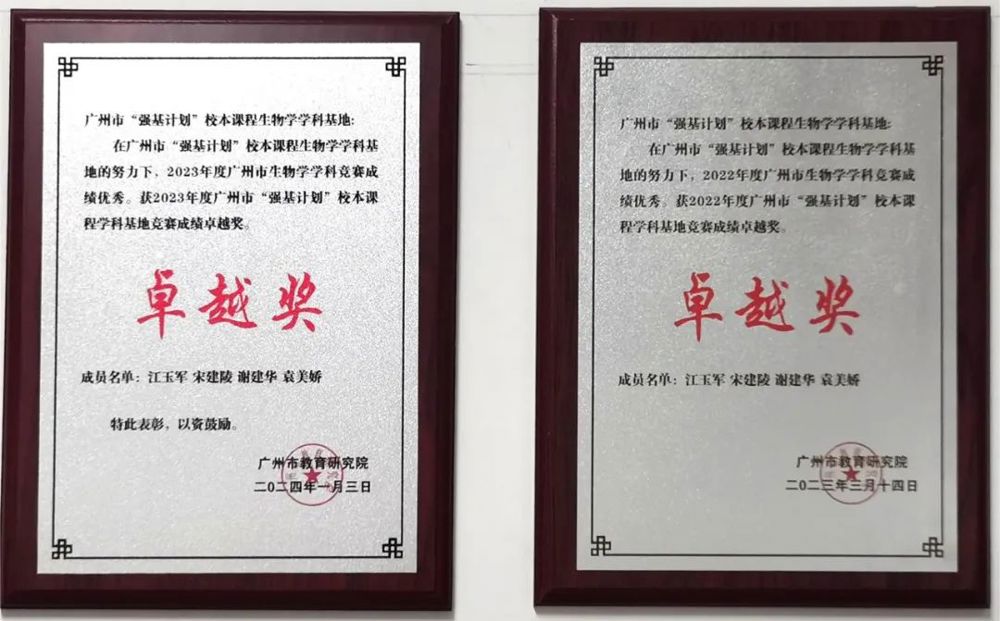 广州市“强基计划”校本课程生物学学科基地:
在广州市“强基计划”校本课程生物学学科基
地的努力下，2023年度广州市生物学学科竞赛成
绩优秀。获2023年度广州市“强基计划”校本课
程学科基地竞赛成绩卓越奖。
卓越奖
成员名单：江玉军 宋建陵 谢建华 袁美娇
特此表彰，以资鼓励。
广州市教育研究院
二〇二四年一月三日
广州市“强基计划”校本课程生物学学科基地:
在广州市“强基计划”校本课程生物学学科基
地的努力下，2022年度广州市生物学学科竞赛成
绩优秀。获2022年度广州市“强基计划”校本课
程学科基地竞赛成绩卓越奖。
卓越奖
成员名单：江玉军 宋建陵 谢建华 袁美娇
广州市教育研究院
二〇二三年三月十四日